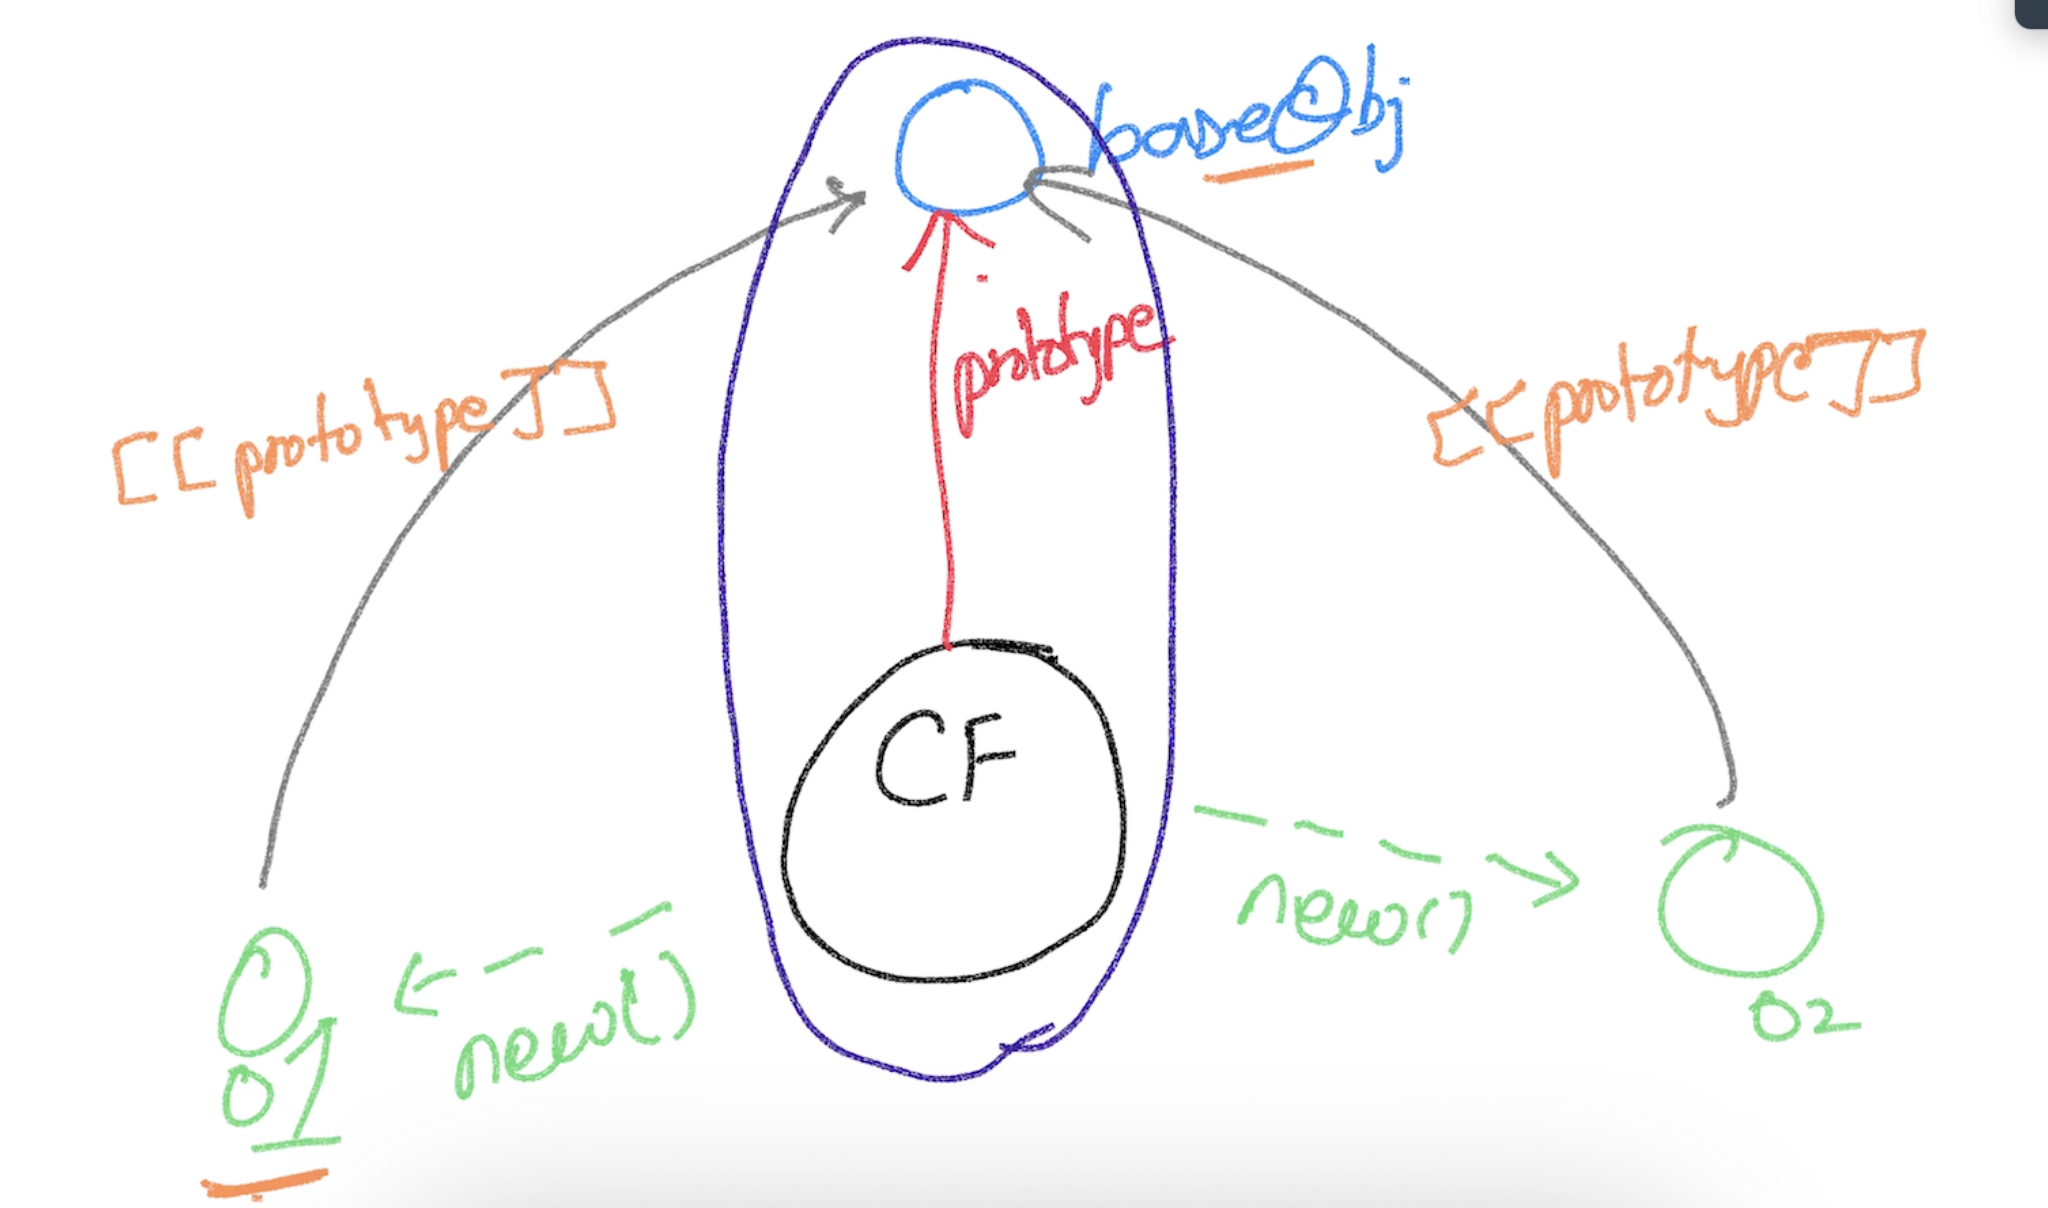 baseObj
prototype
[[prototype]]
[[prototype]]
CF
new()
new()
O1
O2